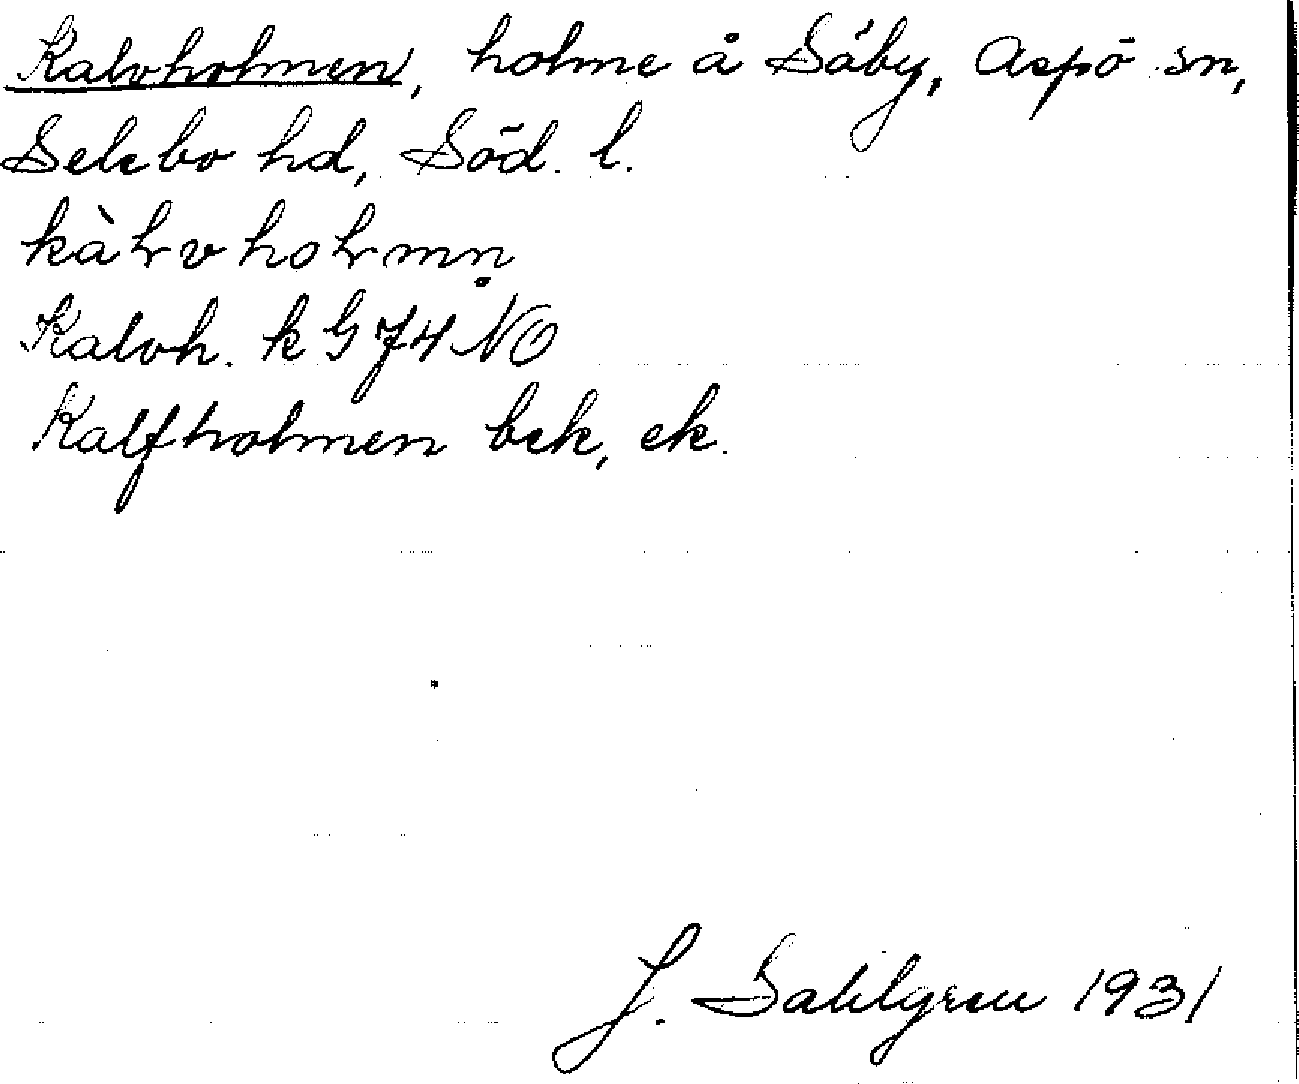 Kalvholmen, holme å Säby, Aspö sn,
Selebo hd, Söd. l.
kàlvholmn̥
Kalvh. k G 74 NO
Kalfholmen bek, ek.
J. Sahlgren 1931